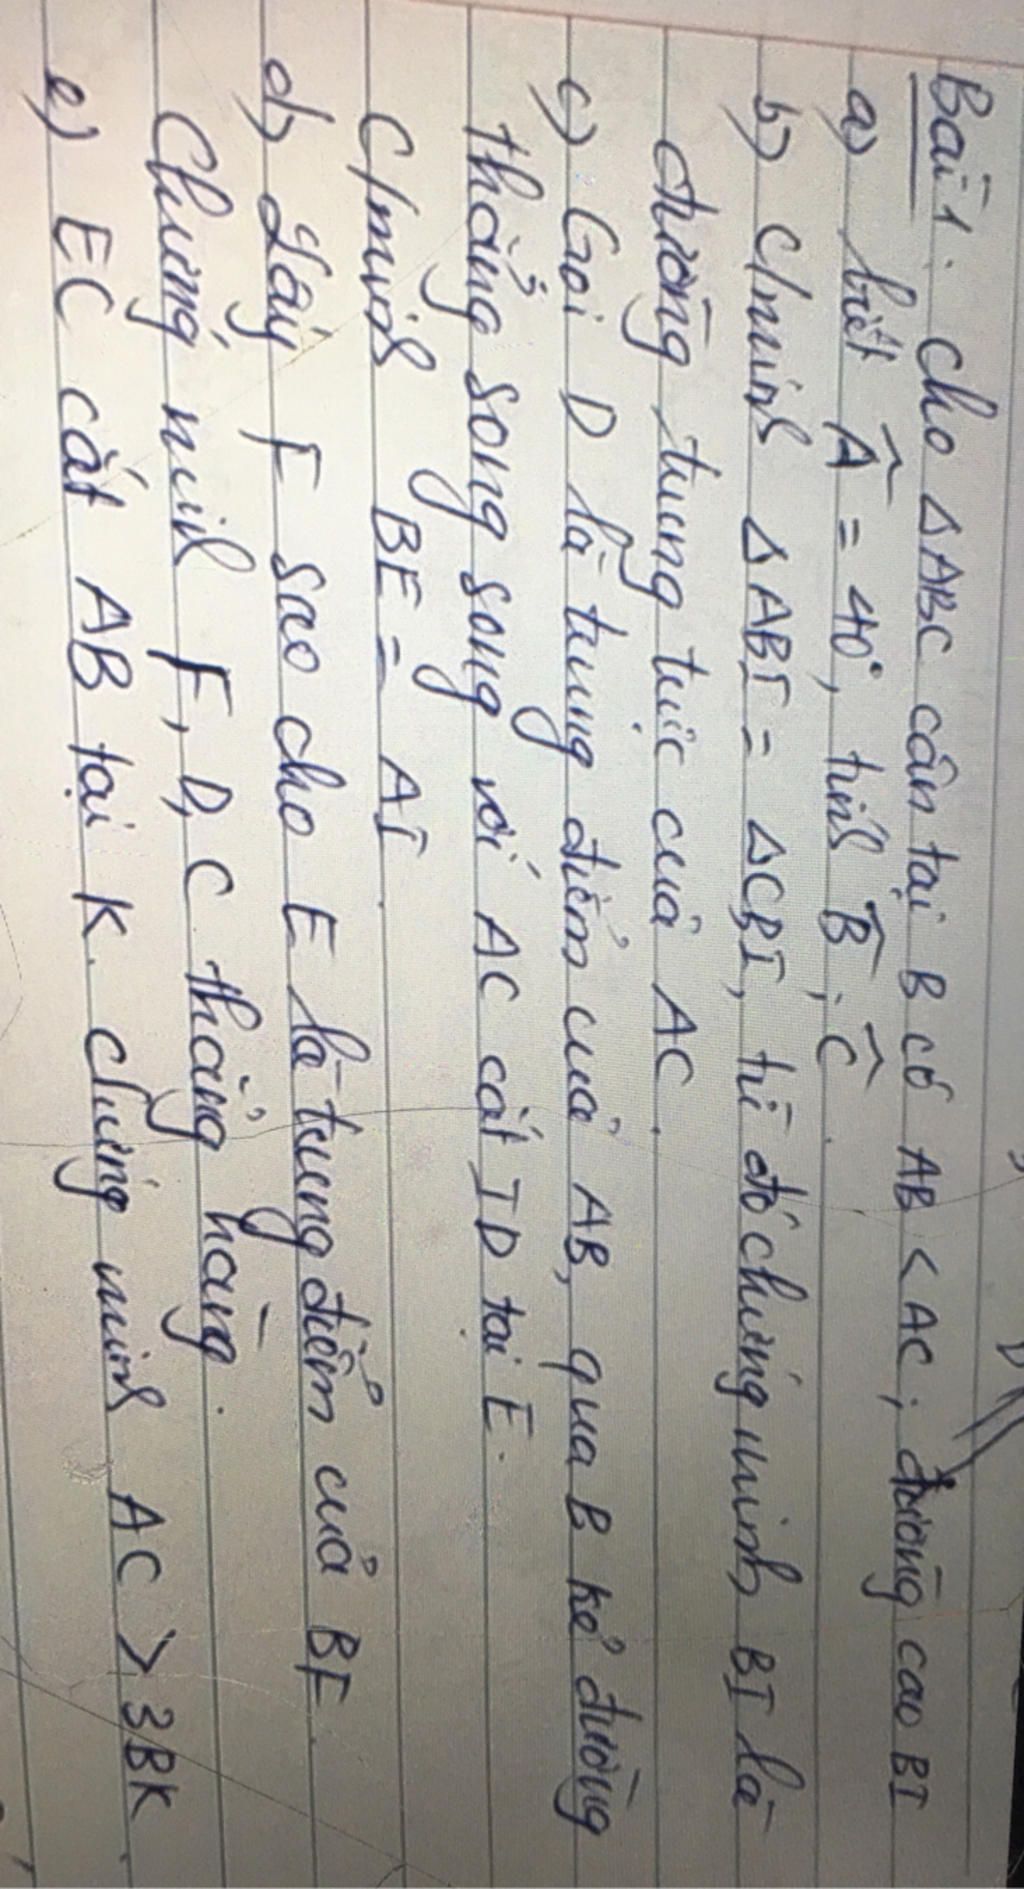 Bài 1: Cho △ABC cân tại B có AB < AC; đường cao BI
a) biết Â = 40°, tính B̂; Ĉ.
b) C/minh △ABI = △CBI, từ đó chứng minh BI là
đường trung trực của AC.
c) Gọi D là trung điểm của AB, qua B kẻ đường
thẳng song song với AC cắt ID tại E.
C/minh BE = AI.
d) Lấy F sao cho E là trung điểm của BF.
Chứng minh F, D, C thẳng hàng.
e) EC cắt AB tại K. Chứng minh AC > 3BK.